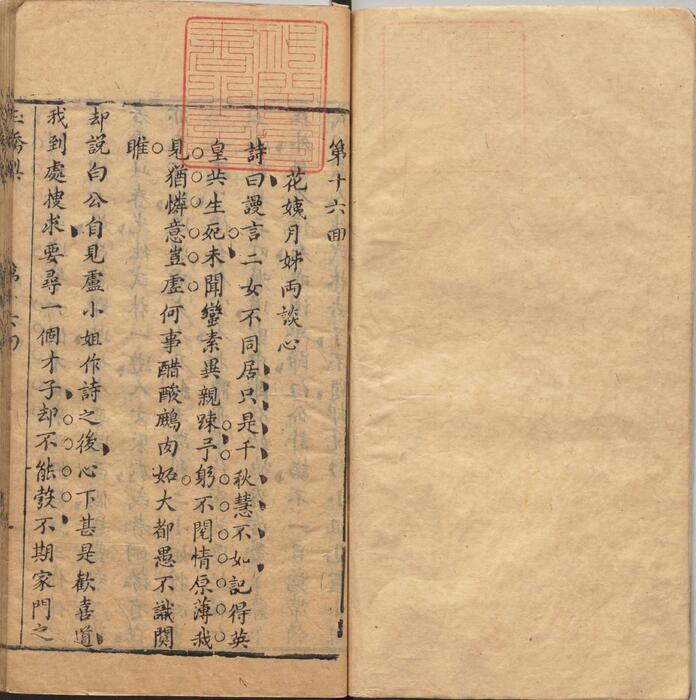 第十六囬
花姨月姊両談心
詩曰謾言二女不同居只是千秋慧不如記得英
皇共生死未聞蠻素異親踈予躬不閱情原薄我
見猶憐意豈虛何事醋酸鷉肉妬大都愚不識関
睢
却説白公自見盧小姐作詩之後心下甚是歡喜道
我到處搜求要尋一個才子却不能彀不期家門之
玉嬌梨
第十六回